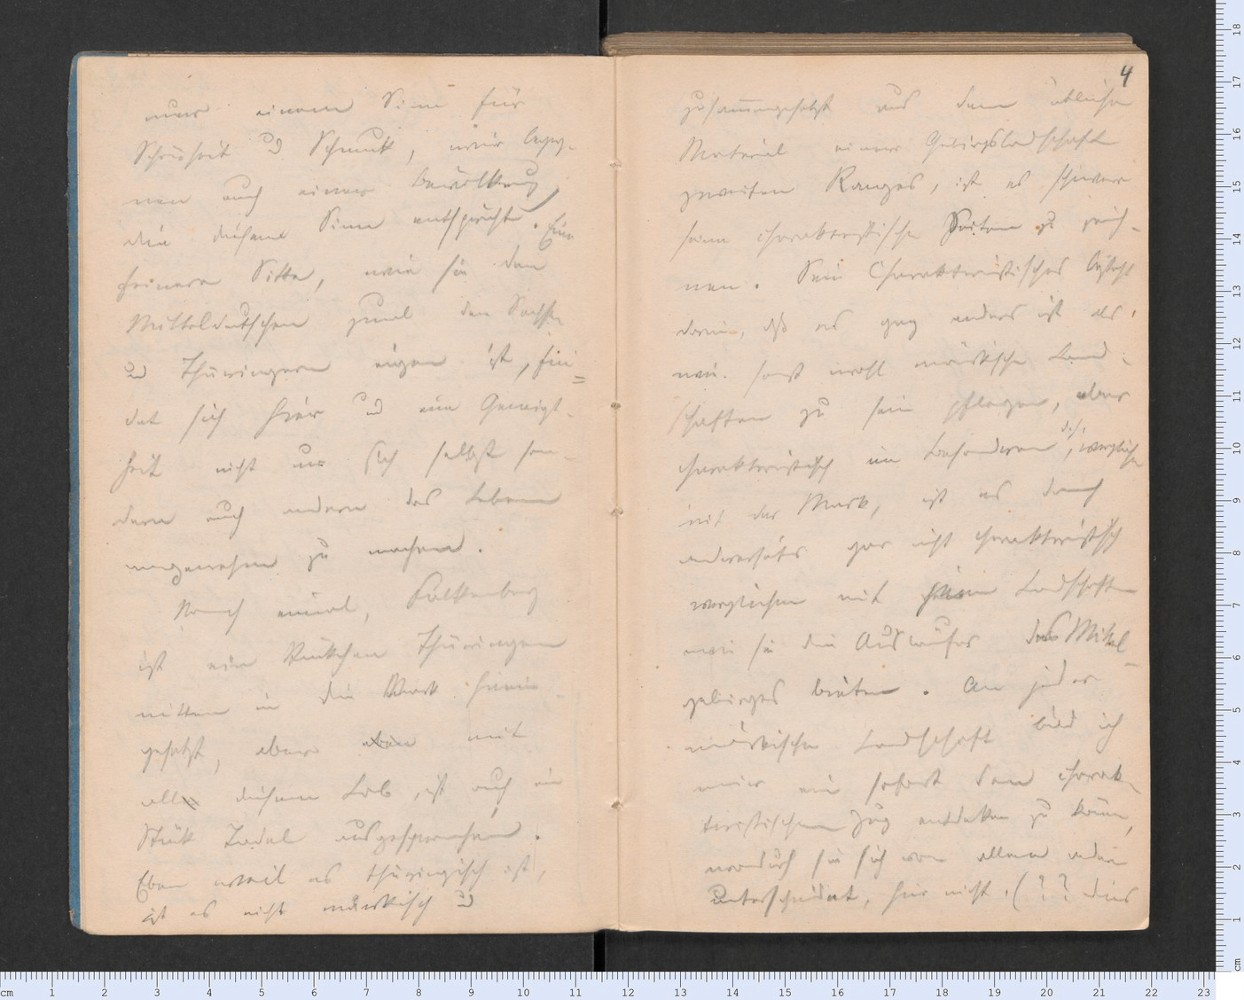 nur einem Sinn für
Schönheit u Schmuck, wir begeg-
nen auch einer Bevölkrung,
die diesem Sinn entspricht. Eine
feinere Sitte, wie sie den
Mitteldeutschen zumal den Sachsen
u Thüringern eigen ist, fin=
det sich hier u eine Geneigt-
heit nicht nur sich selbst son-
dern auch andern das Leben
angenehm zu machen.
Noch einmal, Falkenberg
ist ein Stückchen Thüringen
mitten in die Mark hinein-
gesetzt, aber eben mit
all diesem Lob, ist auch ein
Stück Tadel ausgesprochen.
Eben weil es thüringisch ist,
ist es nicht märkisch u
4
zusammengesetzt aus dem üblichen
Material einer Gebirgslandschaft
zweiten Ranges, ist es schwer
seine charakteristischen Seiten zu zeich-
nen. Sein Charakteristisches besteht
darin, daß es ganz anders ist als,
wie sonst wohl märkische Land-
schaften zu sein pflegen, aber
charakteristisch im Besonderen d.h. verglichen
mit der Mark, ist es doch
andrerseits gar nicht charakteristisch
verglichen mit Landschaften
wie sie die Ausläufer des Mittel-
gebirges bieten. An jeder
märkischen Landschaft bild ich
mir ein sofort den charak-
teristischen Zug entdecken zu können,
wodurch sie sich von allen andern
unterscheidet, hier nicht. (?? dies